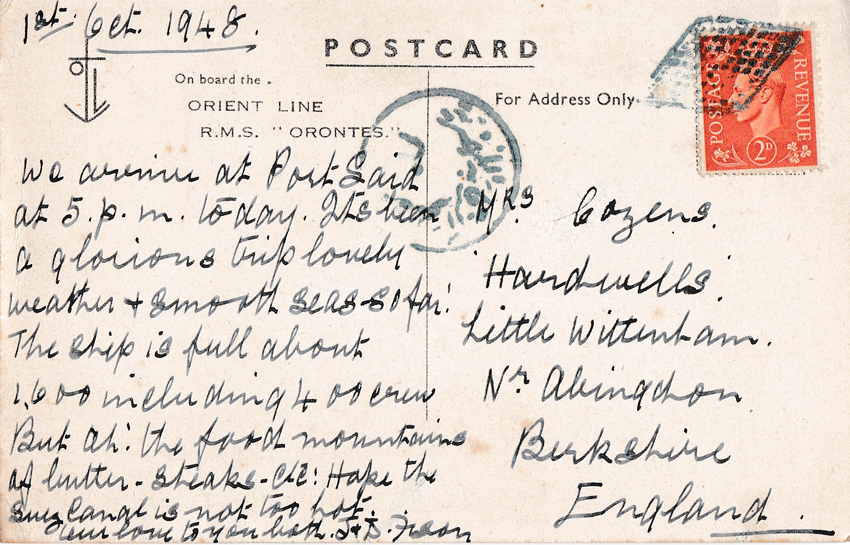 1st. Oct. 1948.
POSTCARD
On board the
ORIENT LINE
R.M.S. "ORONTES."
For Address Only
POSTAGE
REVENUE
2D
We arrive at Port Said
at 5. p. m. today. Its been
a glorious trip lovely
weather & smooth seas - so far!
The ship is full about
1,600 including 400 crew
But ah! the food mountains
of butter - steaks - etc: Hope the
Suez Canal is not too hot.
our love to you both. J & D.
Mrs Cozens.
'Hardwells'.
Little Wittenham.
Nr Abingdon
Berkshire
England.